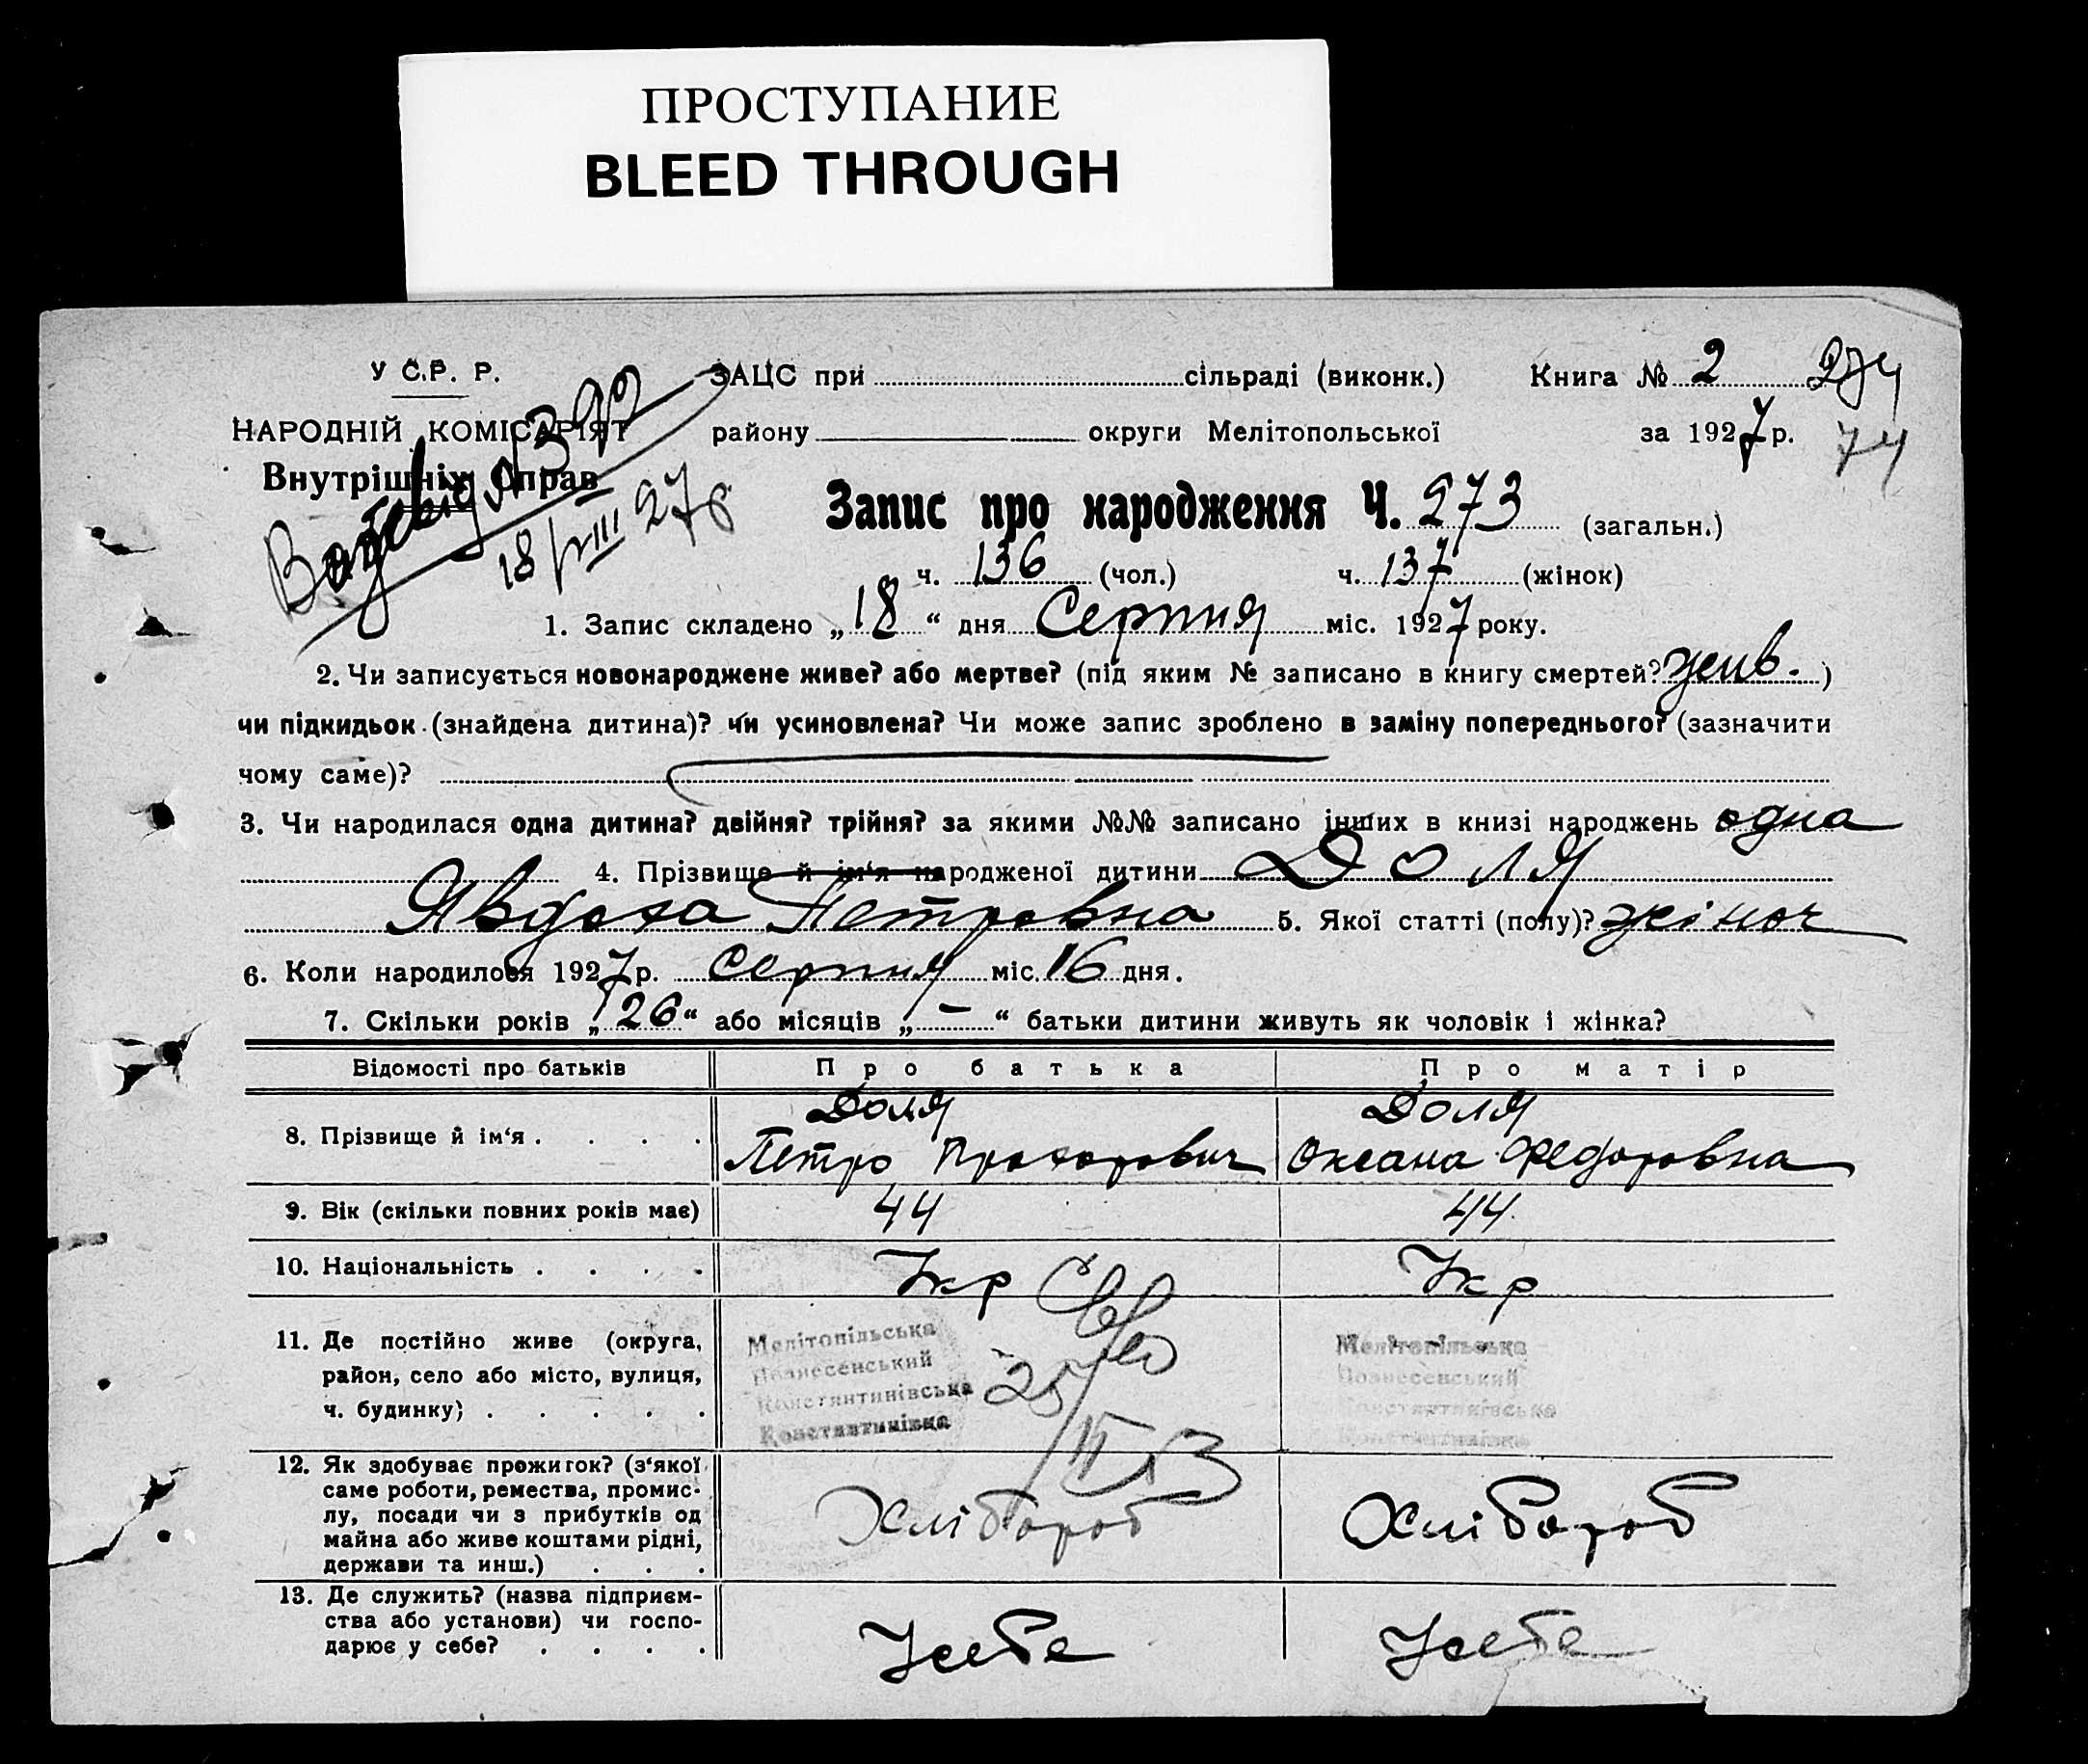 ПРОСТУПАНИЕ
BLEED THROUGH
У С.Р. Р.
НАРОДНІЙ КОМІСАРІЯТ
Внутрішніх Справ
18/VIII 27р
ЗАЦС при сільраді (виконк.) Книга № 2 274
району округи Мелітопольської за 1927 р. 74
Запис про народження Ч. 273 (загальн.)
ч. 136 (чол.) ч. 137 (жінок)
1. Запис складено „18“ дня Серпня міс. 1927 року.
2. Чи записується новонароджене живе? або мертве? (під яким № записано в книгу смертей? жив.)
чи підкидьок (знайдена дитина)? чи усиновлена? Чи може запис зроблено в заміну попереднього? (зазначити
чому саме)?
3. Чи народилася одна дитина? двійня? трійня? за якими №№ записано інших в книзі народжень одна
4. Прізвище й ім‘я народженої дитини Доля
Явдоха Петровна 5. Якої статті (полу)? жіноч
6. Коли народилося 1927 р. Серпня міс. 16 дня.
7. Скільки років „26“ або місяців „—“ батьки дитини живуть як чоловік і жінка?
Відомості про батьків Про батька Про матір
8. Прізвище й ім‘я . . . . Доля Доля
Петро Прохорович Оксана Федоровна
9. Вік (скільки повних років має) 44 44
10. Національність . . . . Укр Укр
11. Де постійно живе (округа,
район, село або місто, вулиця,
ч. будинку) . . . . .
Мелітопільська
Вознесенський
Константинівська
Константинівка
Мелітопільська
Вознесенський
Константинівська
Константинівка
12. Як здобуває прожиток? (з‘якої
саме роботи, ремества, промис-
лу, посади чи з прибутків од
майна або живе коштами рідні,
держави та инш.) . . .
Хлібороб Хлібороб
13. Де служить? (назва підприєм-
ства або установи) чи госпо-
дарює у себе? . . . .
Усебе Усебе